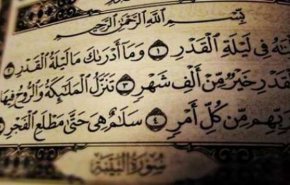 بِسْمِ ٱللَّهِ ٱلرَّحْمَٰنِ ٱلرَّحِيمِ
فِى لَيْلَةِ ٱلْقَدْرِ ١ وَمَآ أَدْرَىٰكَ مَا لَيْلَةُ ٱلْقَدْرِ ٢
ٱلْقَدْرِ خَيْرٌ مِّنْ أَلْفِ شَهْرٍ ٣ تَنَزَّلُ ٱلْمَلَٰٓئِكَةُ وَٱلرُّوحُ فِيهَا
رَبِّهِم مِّن كُلِّ أَمْرٍ ٤ سَلَٰمٌ هِىَ حَتَّىٰ مَطْلَعِ ٱلْفَجْرِ
سُورَةُ البَيِّنَةِ